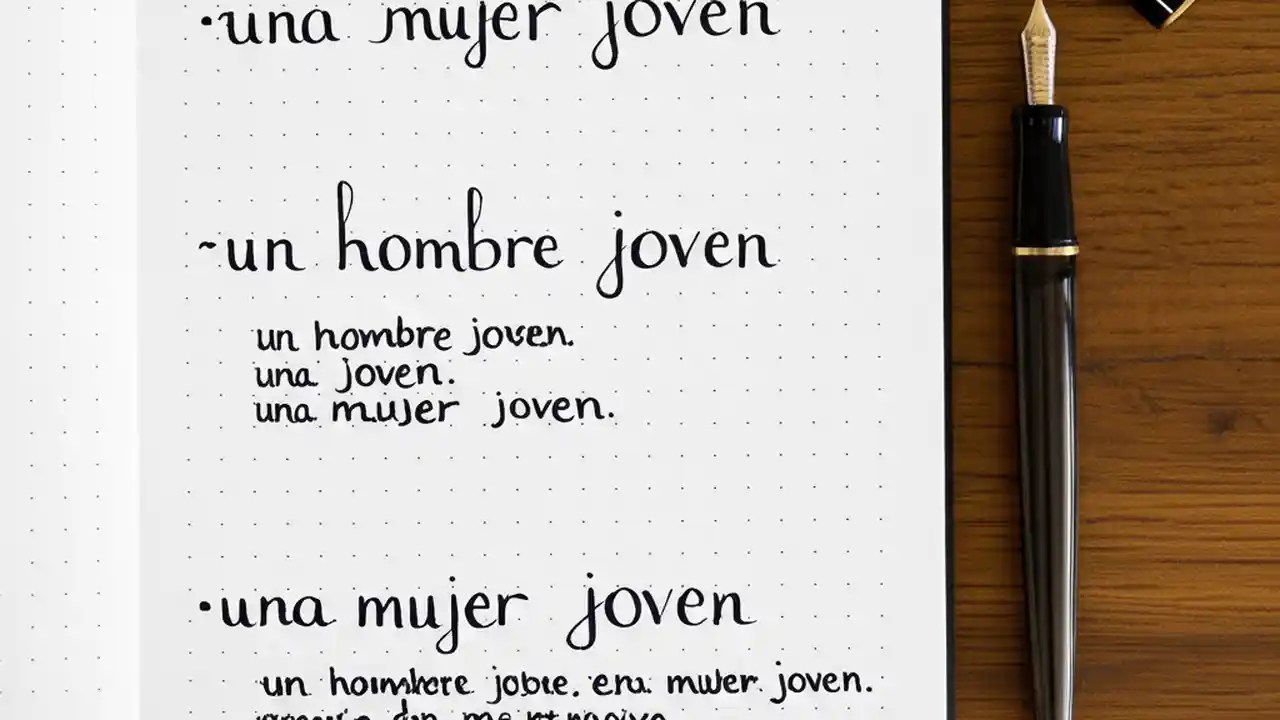 •una mujer joven
~un hombre joven
un hombre joven.
una joven.
una mujer joven.
•una mujer joven
un joven.